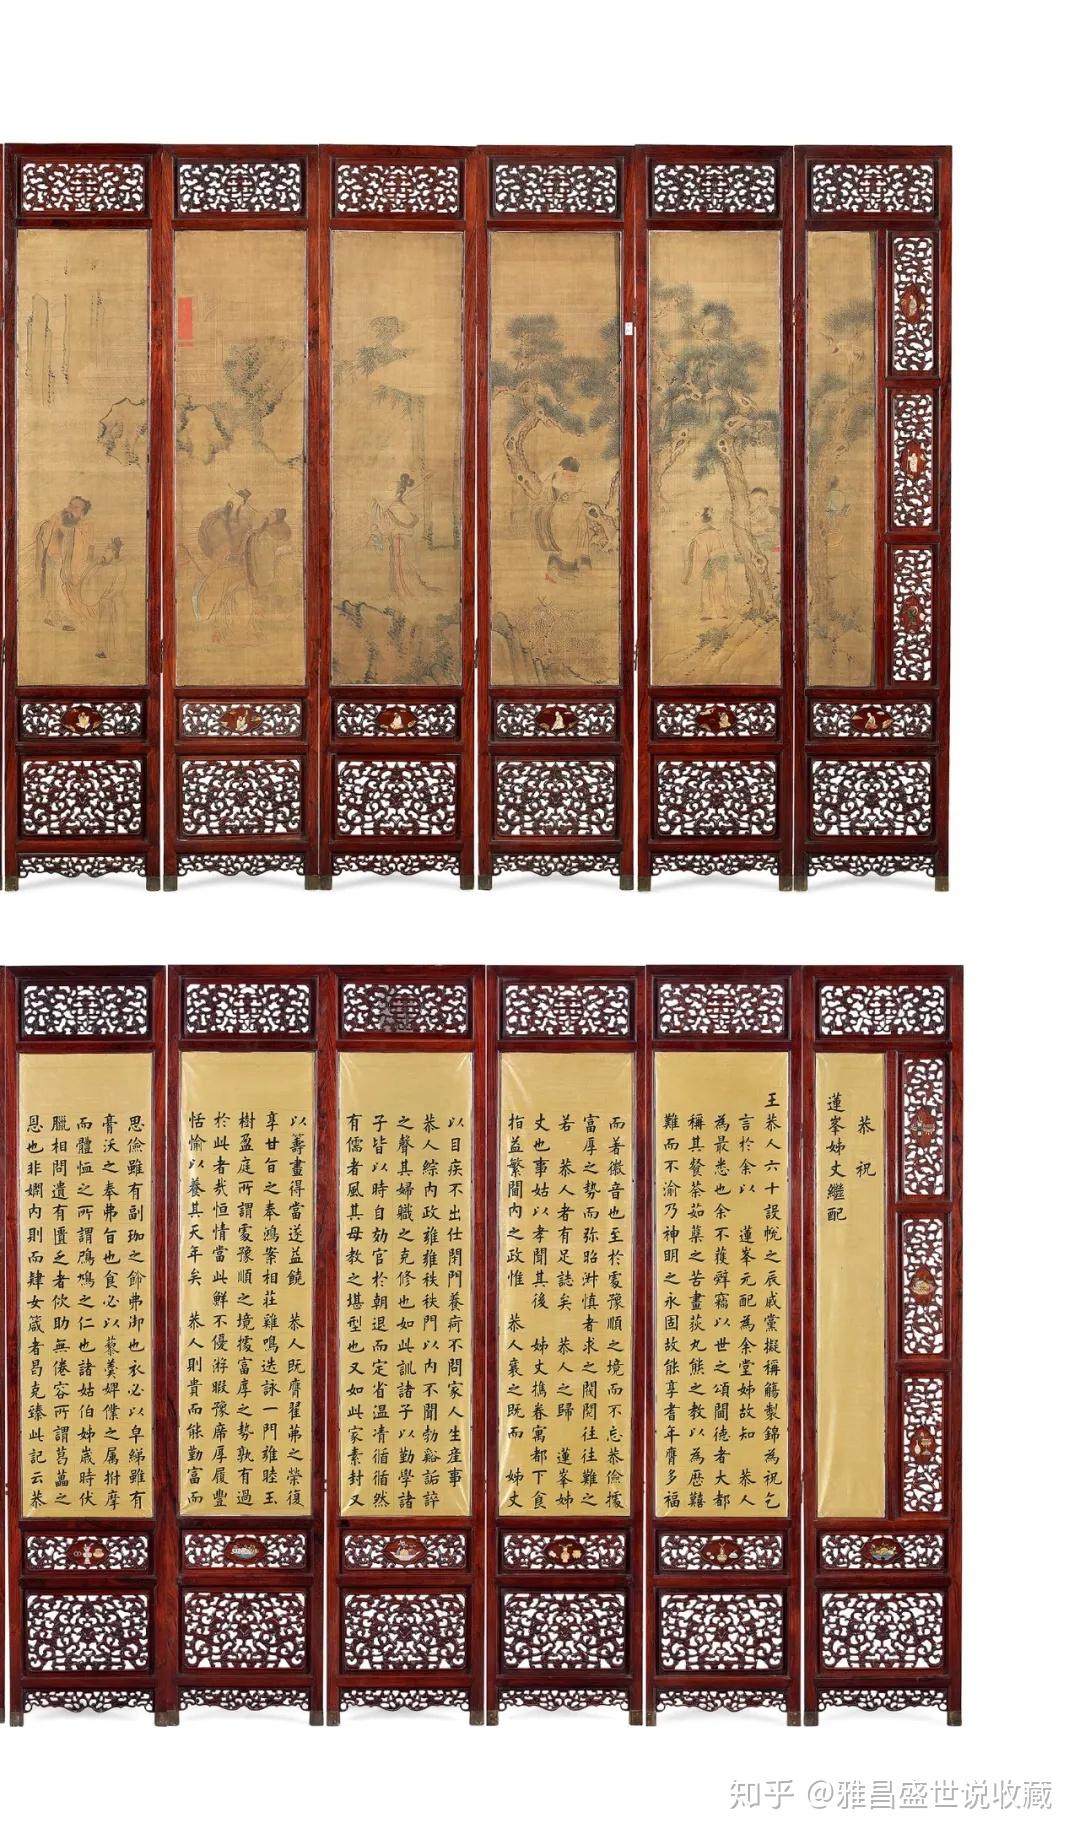 恭祝
蓮峯姊丈繼配
王恭人六十設帨之辰戚黨擬稱觴製錦為祝乞
言於余以蓮峯元配為余堂姊故知恭人
為最悉也余不獲辭竊以世之頌閫德者大都
稱其餐荼茹蘗之苦畫荻丸熊之教以為歷囏
難而不渝乃神明之永固故能享耆年膺多福
而著徽音也至於處豫順之境而不忘恭儉擴
富厚之勢而弥昭淑慎者求之閥閱往往難之
若恭人者有足誌矣恭人之歸蓮峯姊
丈也事姑以孝聞其後姊丈攜眷寓都下食
指益繁閫內之政惟恭人襄之既而姊丈
以目疾不出仕閉門養疴不問家人生產事
恭人綜內政雍雍秩秩門以內不聞勃谿詬誶
之聲其婦職之克修也如此訓諸子以勤學諸
子皆以時自効官於朝退而定省温凊循循然
有儒者風其母教之堪型也又如此家素封又
以籌畫得當遂益饒恭人既膺翟茀之榮復
享甘旨之奉鴻案相莊雞鳴迭詠一門雍睦玉
樹盈庭所謂處豫順之境擴富厚之勢孰有過
於此者哉恒情當此鮮不優游暇豫席厚履豐
恬愉以養其天年矣恭人則貴而能勤富而
思儉雖有副珈之飾弗御也衣必以皁綈雖有
膏沃之奉弗旨也食必以藜羹婢僕之属拊摩
而體恤之所謂鳲鳩之仁也諸姑伯姊歲時伏
臘相問遺有匱乏者佽助無倦容所謂葛藟之
恩也非嫻內則而肄女箴者曷克臻此記云恭
知乎 @雅昌盛世说收藏